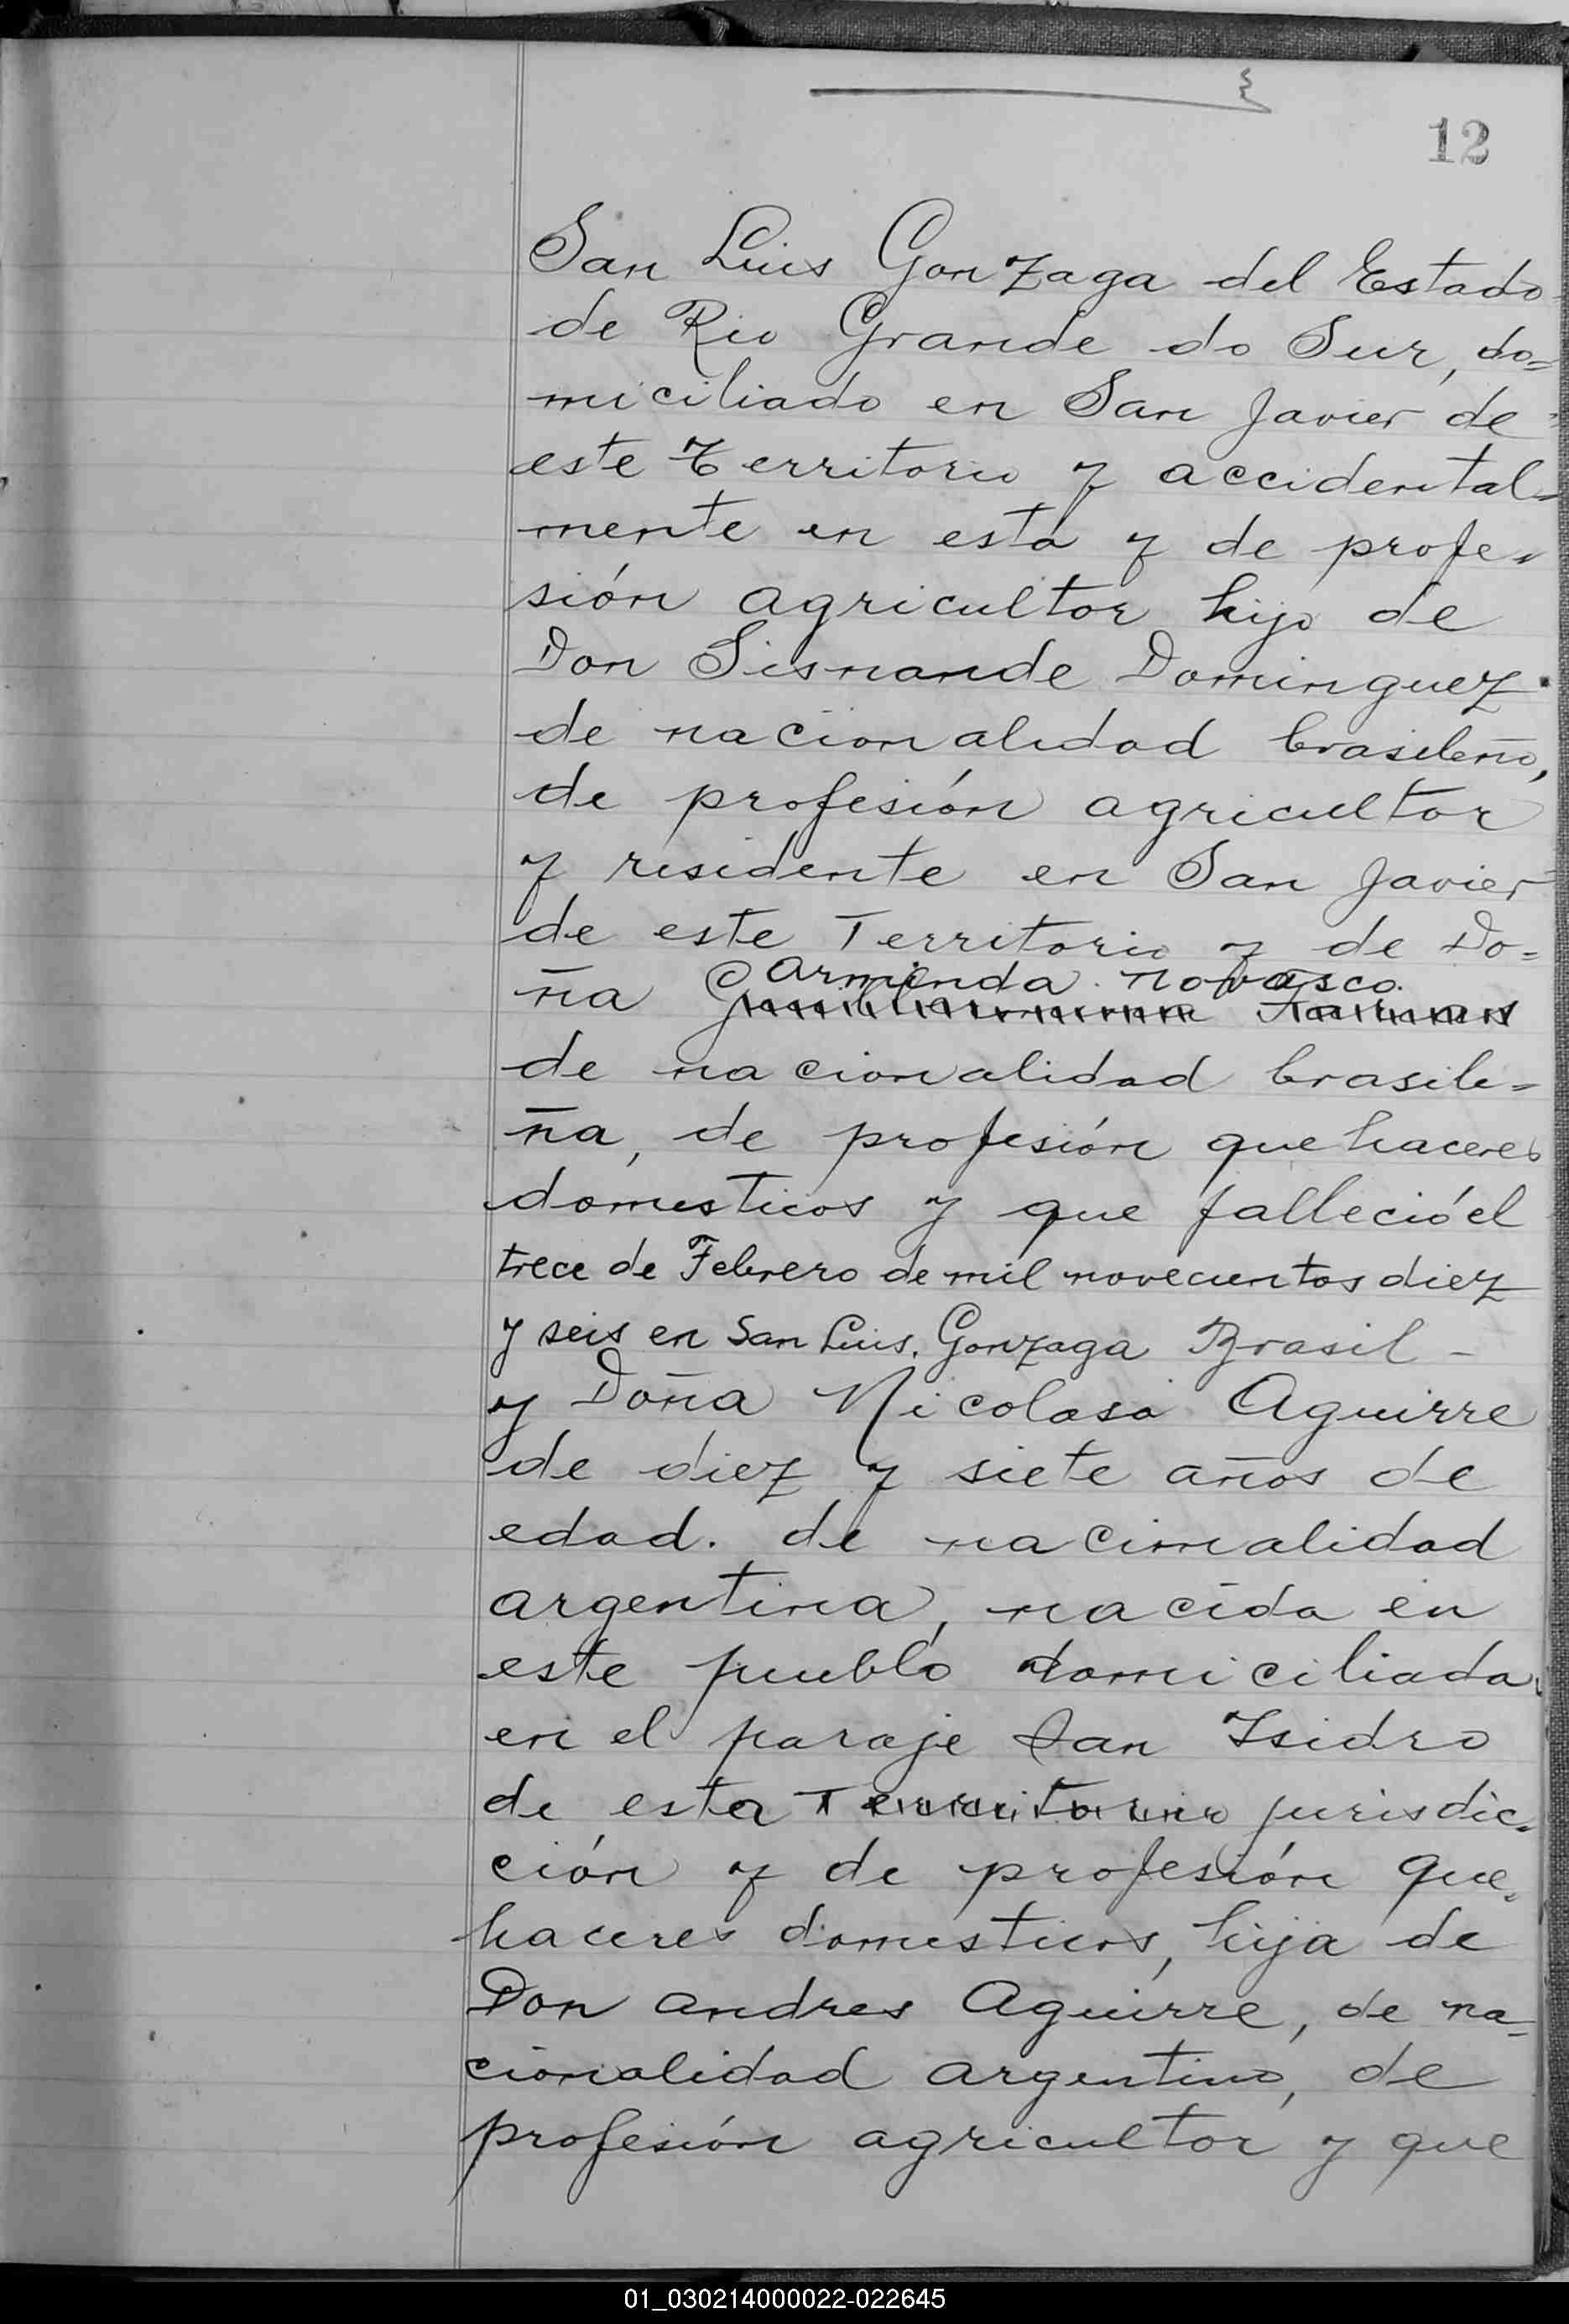 12
San Luis Gonzaga del Estado
de Rio Grande do Sur, do=
miciliado en San Javier de
este Territorio y accidental=
mente en esta y de profe=
sión agricultor hijo de
Don Sisnande Dominguez
de nacionalidad brasileño,
de profesión agricultor
y residente en San Javier
de este Territorio y de Do=
Armienda Novasco.
ña
de nacionalidad brasile=
ña, de profesión quehaceres
domesticos y que falleció el
trece de Febrero de mil novecientos diez
y seis en San Luis. Gonzaga Brasil -
y Doña Nicolasa Aguirre
de diez y siete años de
edad. de nacionalidad
argentina, nacida en
este pueblo domiciliada
en el paraje San Isidro
de esta Territorio jurisdic=
ción y de profesión que=
haceres domesticos, hija de
Don Andres Aguirre, de na=
cionalidad argentino, de
profesión agricultor y que
01_030214000022-022645